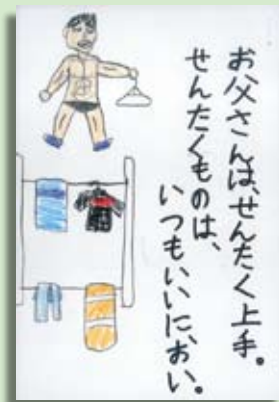 お父さんは、せんたく上手。
せんたくものは、
いつもいいにおい。